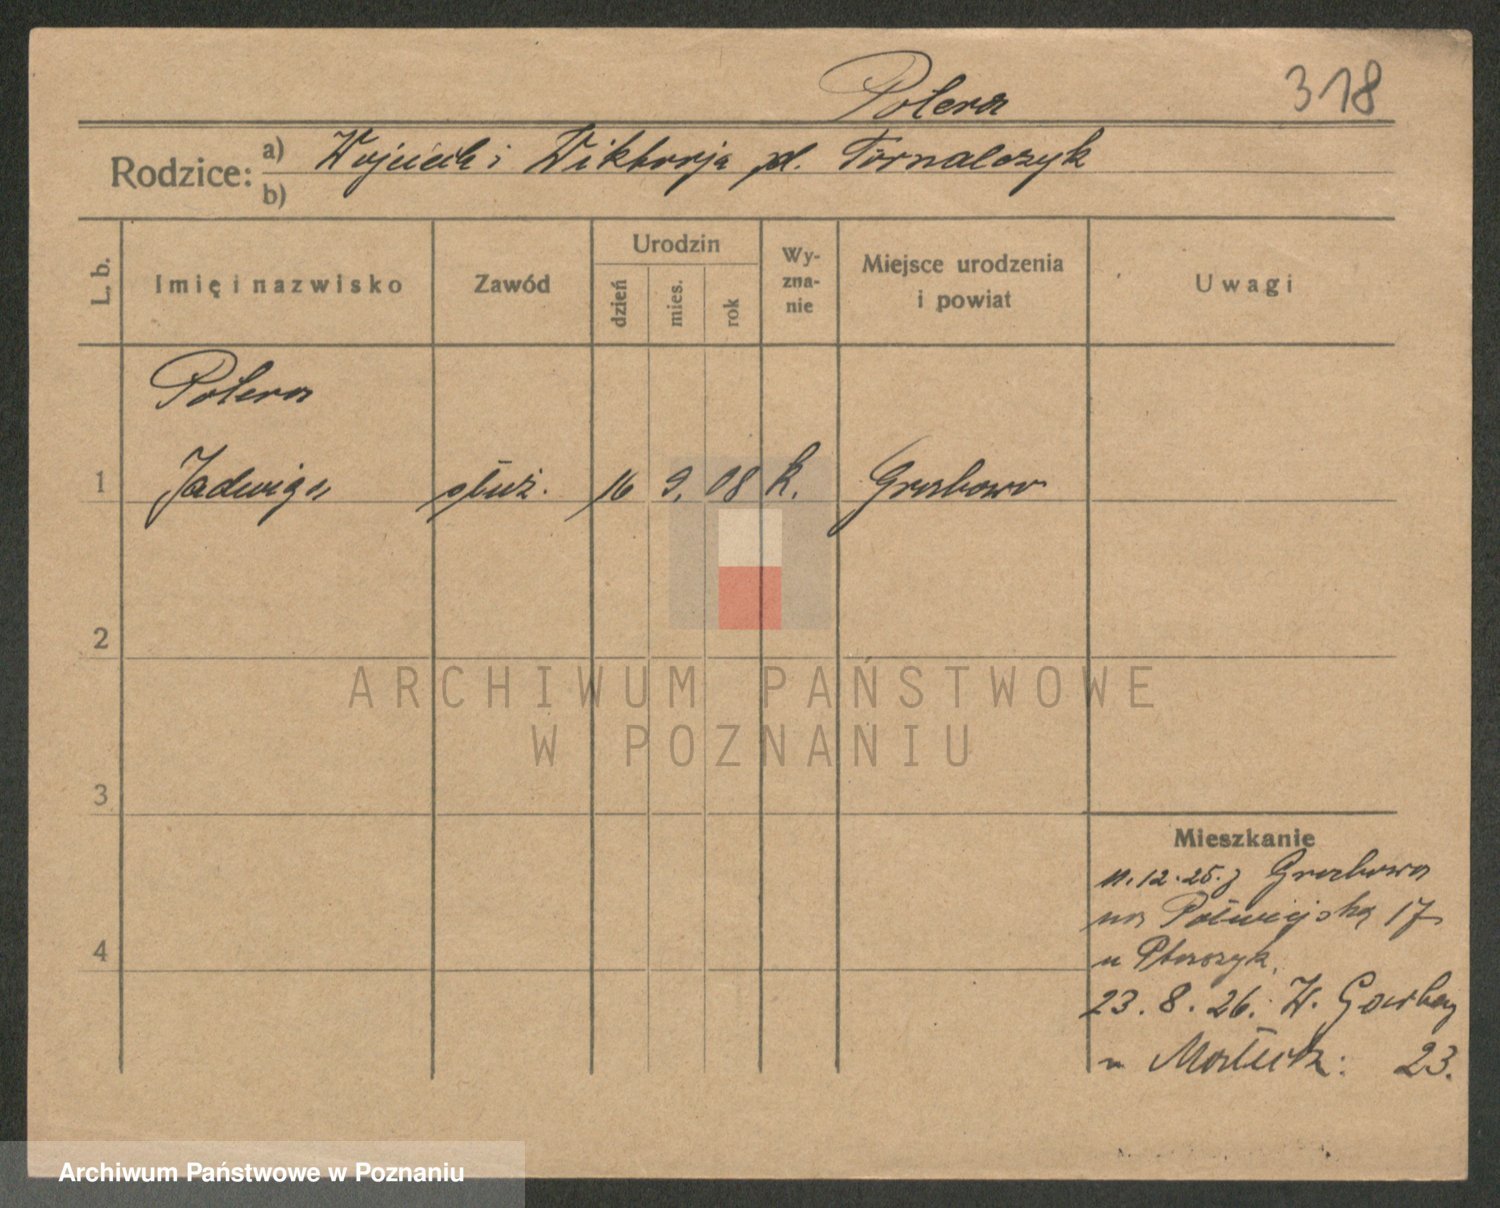 Polera
318
Rodzice: a) Wojciech i Wiktorja zd. Tornalczyk
b)
L. b.
Imię i nazwisko
Zawód
Urodzin
dzień
mies.
rok
Wy-
zna-
nie
Miejsce urodzenia
i powiat
Uwagi
Polera
1 Jadwiga służ. 16 9. 08 k. Grabowo
2
3
4
Mieszkanie
11.12.25. z Grabowa
na Półwiejską 17
u
23.8.26. W. Garbary
u 23.
ARCHIWUM PAŃSTWOWE
W POZNANIU
Archiwum Państwowe w Poznaniu